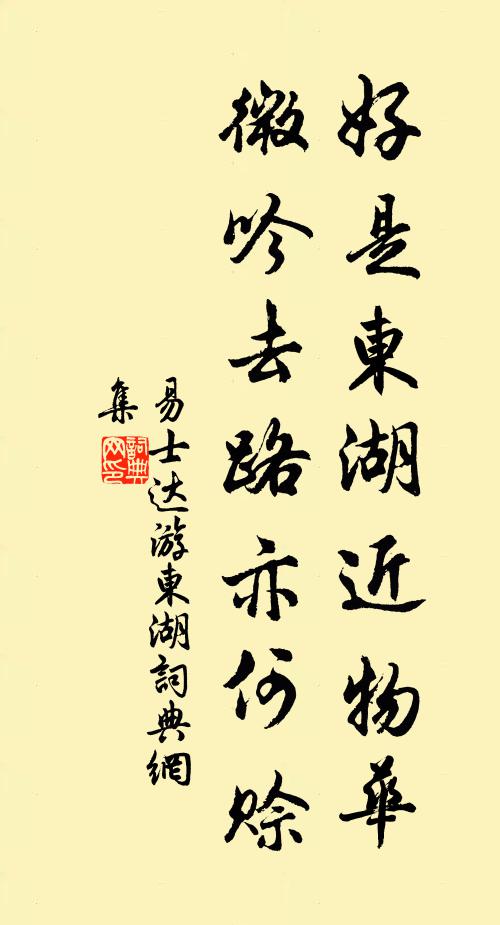 好是東湖近物華
微吟去路亦何賒
易士达游東湖詞典網
集
詞典
网印